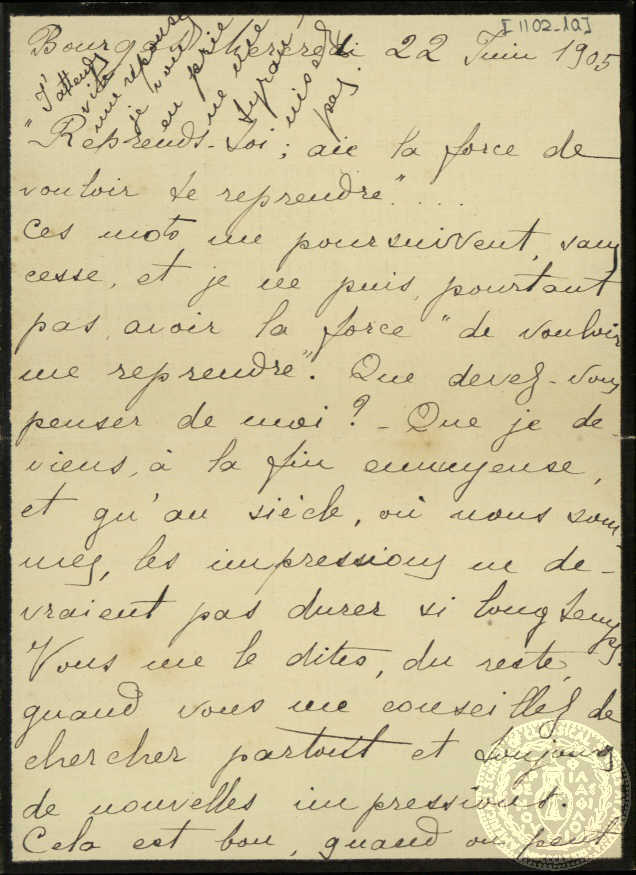 [1102-1a]
Bourgas, Mercredi 22 Juin 1905
J'attends
vite
une réponse
je vous
en prie
ne me
tyrannisez
pas.
"Reprends-toi ; aie la force de
vouloir te reprendre"....
Ces mots me poursuivent, sans
cesse, et je ne puis, pourtant
pas, avoir la force "de vouloir
me reprendre". Que devez-vous
penser de moi ? - Que je de-
viens, à la fin ennuyeuse,
et qu'au siècle, où nous som-
mes, les impressions ne de-
vraient pas durer si longtemps.
Vous me le dites, du reste,
quand vous me conseillez de
chercher partout et toujours
de nouvelles impressions.
Cela est bon, quand on peut